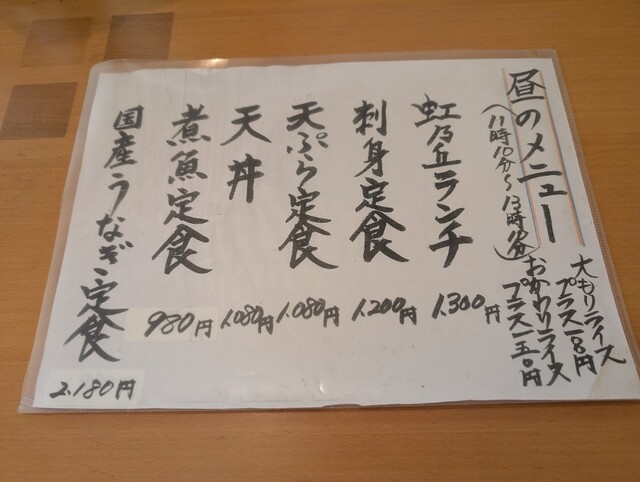 昼のメニュー
(11時10分～13時10分)
大もりライス
プラス一八〇円
おかわりライス
プラス一五〇円
虹乃丘ランチ
1.300円
刺身定食
1.200円
天ぷら定食
1.080円
天丼
1.080円
煮魚定食
980円
国産うなぎ定食
2.180円